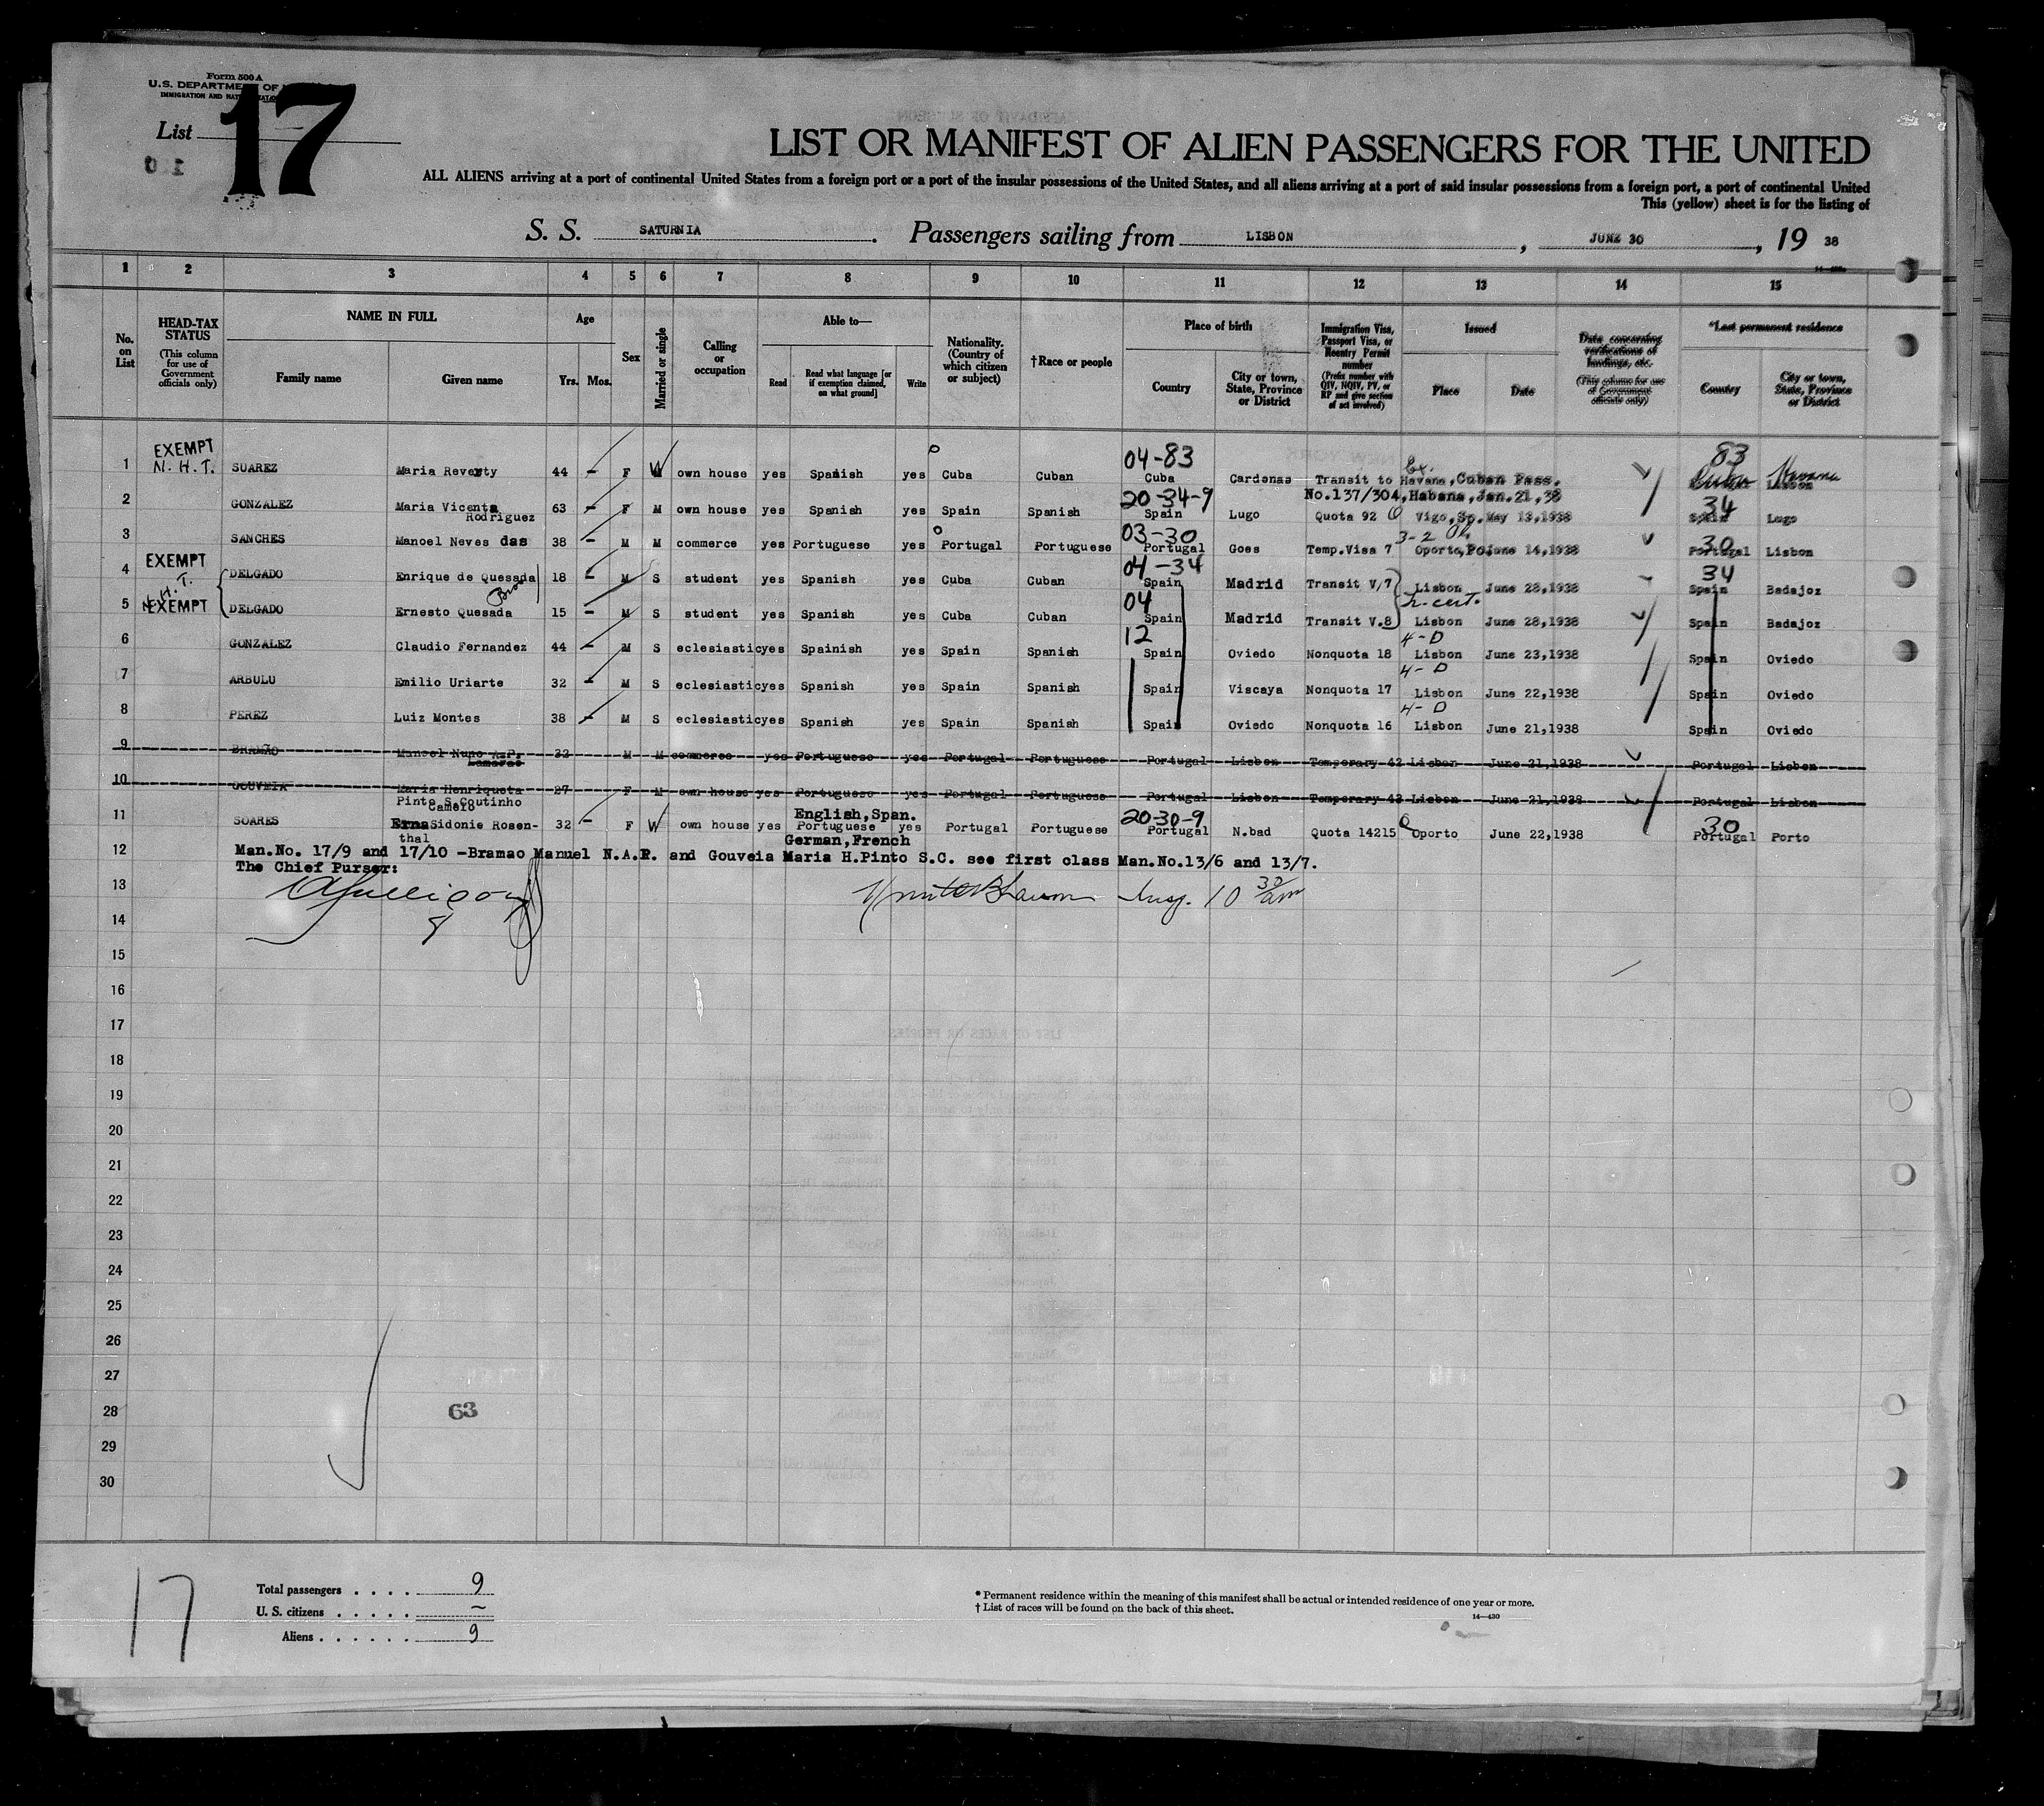 Form 500 A
U.S. DEPARTMENT OF
IMMIGRATION AND
List 17
LIST OR MANIFEST OF ALIEN PASSENGERS FOR THE UNITED
ALL ALIENS arriving at a port of continental United States from a foreign port or a port of the insular possessions of the United States, and all aliens arriving at a port of said insular possessions from a foreign port, a port of continental United
This (yellow) sheet is for the listing of
S. S. SATURNIA. Passengers sailing from LISBON, JUNE 30, 19 38
1 2 3 4 5 6 7 8 9 10 11 12 13 14 15
No. on List
HEAD-TAX STATUS (This column for use of Government officials only)
NAME IN FULL
Family name Given name
Age
Yrs. Mos.
Sex
Married or single
Calling or occupation
Able to—
Read Read what language [or if exemption claimed, on what ground] Write
Nationality. (Country of which citizen or subject)
†Race or people
Place of birth
Country City or town, State, Province or District
Immigration Visa, Passport Visa, or Reentry Permit number (Prefix number with QIV, NQIV, PV, or RP and give section of act involved)
Issued
Place Date
Data concerning verifications of landings, etc. (This column for use of Government officials only)
*Last permanent residence
Country City or town, State, Province or District
EXEMPT 04-83 83
1 N.H.T. SUAREZ Maria Reverty 44 - F W own house yes Spanish yes Cuba Cuban Cuba Cardenas Transit to Havana, Cuban Pass. Cuba Havana
20-34-9 No.137/304, Habana, Jan.21,38 34
2 GONZALEZ Maria Vicenta Rodriguez 63 - F M own house yes Spanish yes Spain Spanish Spain Lugo Quota 92 Vigo, Sp. May 13,1938 Spain Lugo
03-30 3-2 30
3 SANCHES Manoel Neves das 38 - M M commerce yes Portuguese yes Portugal Portuguese Portugal Goes Temp.Visa 7 Oporto,Po June 14,1938 Portugal Lisbon
EXEMPT 04-34 34
4 H.T. DELGADO Enrique de Quesada 18 - M S student yes Spanish yes Cuba Cuban Spain Madrid Transit V/7 Lisbon June 28,1938 Spain Badajoz
Bro 04 Tr. cert.
5 EXEMPT DELGADO Ernesto Quesada 15 - M S student yes Spanish yes Cuba Cuban Spain Madrid Transit V.8 Lisbon June 28,1938 Spain Badajoz
12 4-D
6 GONZALEZ Claudio Fernandez 44 - M S eclesiastic yes Spainish yes Spain Spanish Spain Oviedo Nonquota 18 Lisbon June 23,1938 Spain Oviedo
4-D
7 ARBULU Emilio Uriarte 32 - M S eclesiastic yes Spanish yes Spain Spanish Spain Viscaya Nonquota 17 Lisbon June 22,1938 Spain Oviedo
4-D
8 PEREZ Luiz Montes 38 - M S eclesiastic yes Spanish yes Spain Spanish Spain Oviedo Nonquota 16 Lisbon June 21,1938 Spain Oviedo
9 BRAMÃO Manoel Nuno A.P. 32 M M commerce yes Portuguese yes Portugal Portuguese Portugal Lisbon Temporary 42 Lisbon June 21,1938 Portugal Lisbon
10 GOUVEIA Maria Henriqueta Pinto S.Coutinho Camelo 27 F M own house yes Portuguese yes Portugal Portuguese Portugal Lisbon Temporary 43 Lisbon June 21,1938 Portugal Lisbon
English,Span. 20-30-9 30
11 SOARES Erna Sidonie Rosenthal 32 - F W own house yes Portuguese yes Portugal Portuguese Portugal N.bad Quota 14215 Oporto June 22,1938 Portugal Porto
German,French
12 Man.No. 17/9 and 17/10 -Bramao Manuel N.A.P. and Gouveia Maria H.Pinto S.C. see first class Man.No.13/6 and 13/7.
The Chief Purser:
13 Insp. 10 30/am
14
15
16
17
18
19
20
21
22
23
24
25
26
27
28 63
29
30
17
Total passengers . . . . 9
U. S. citizens . . . . . –
Aliens . . . . . . 9
* Permanent residence within the meaning of this manifest shall be actual or intended residence of one year or more.
† List of races will be found on the back of this sheet.
14—430